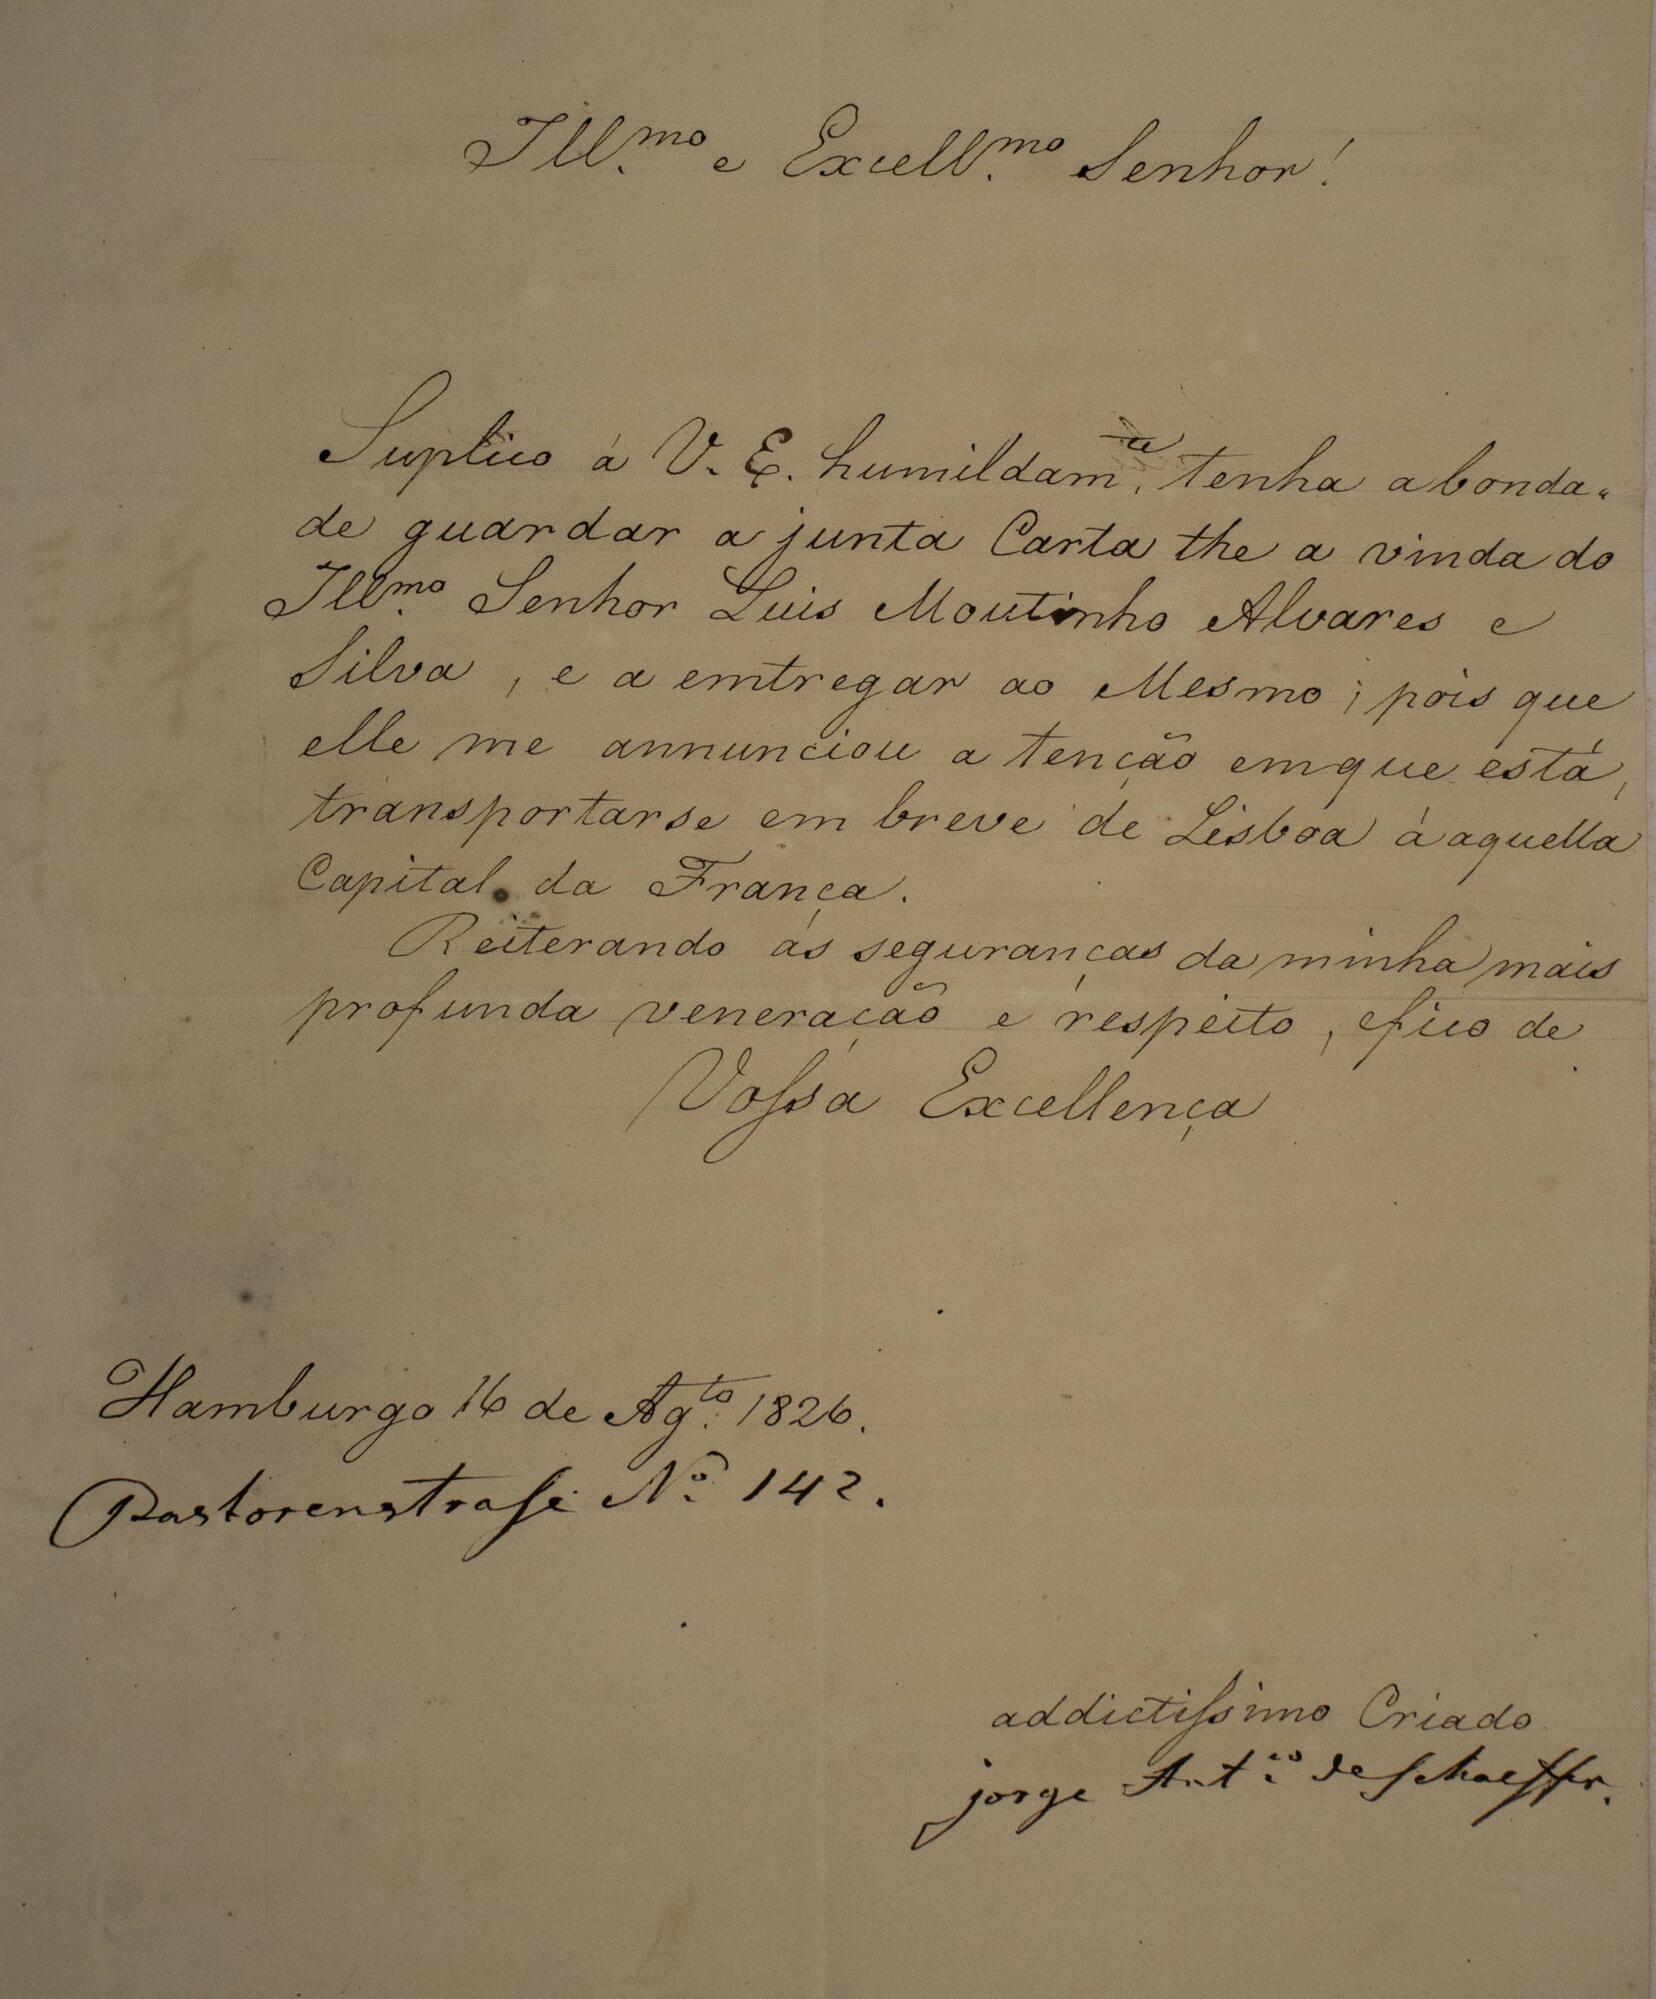 Ill.mo e Excell.mo Senhor!
Suplico á V. E. humildam.te, tenha a bonda-
de guardar a junta Carta the a vinda do
Ill.mo Senhor Luis Moutinho Alvares e
Silva, e a emtregar ao Mesmo; pois que
elle me annunciou a tenção emque está,
transportarse em breve de Lisboa á aquella
Capital da França.
Reiterando as seguranças da minha mais
profunda veneração e respeito, efico de
Voſsa Excellença
Hamburgo 16 de Ag.to 1826.
Pastorenstraſse No. 142.
addictiſsimo Criado
jorge Ant.o de Schaeffer.